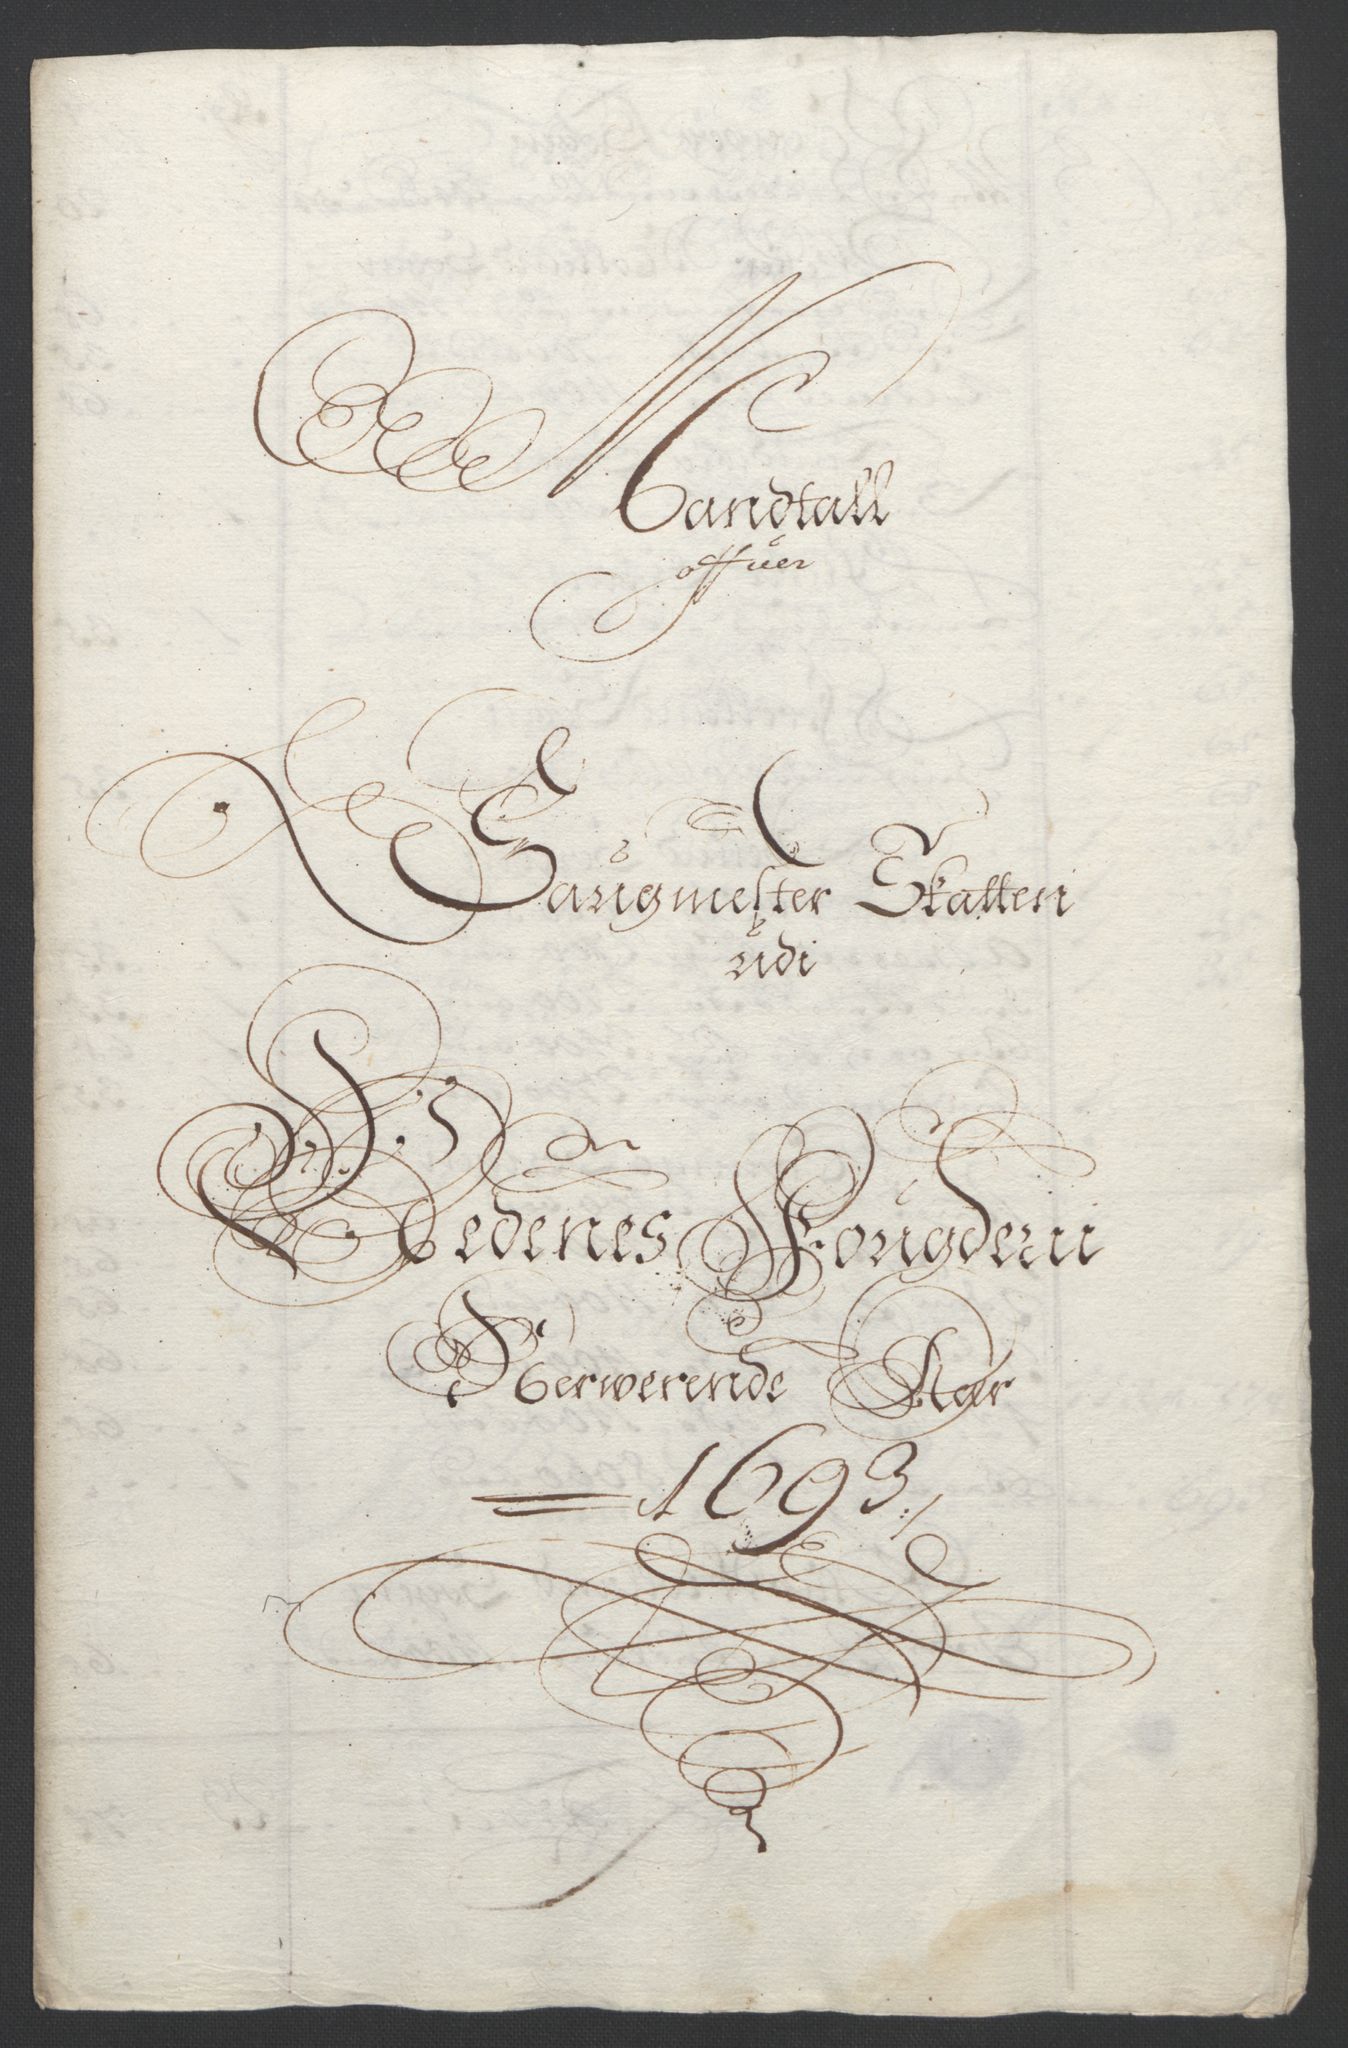 Mandtall
offuer
Saugmester Skatten
udi
Nedenes Fougderii
Nerwerende Aar
1693/